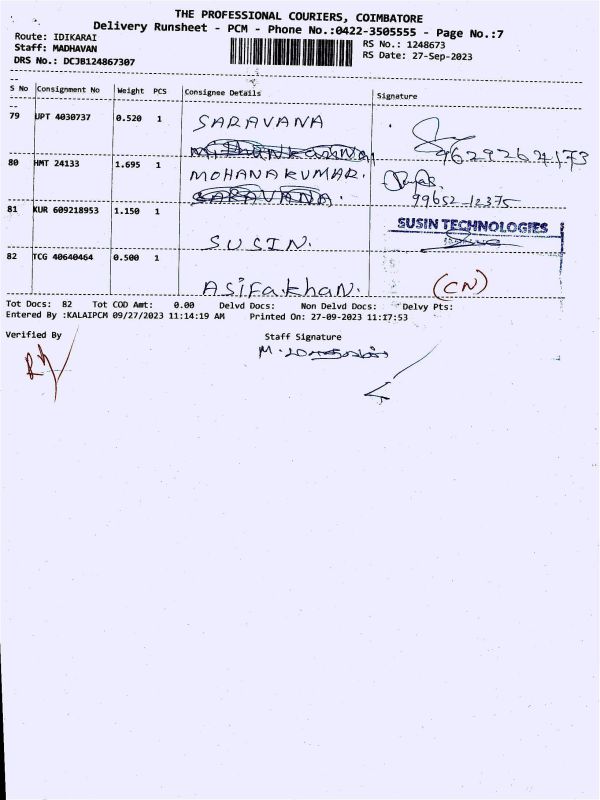 THE PROFESSIONAL COURIERS, COIMBATORE
Delivery Runsheet - PCM - Phone No.:0422-3505555 - Page No.:7
Route: IDIKARAI
Staff: MADHAVAN
DRS No.: DCJB124867307
RS No.: 1248673
RS Date: 27-Sep-2023
S No Consignment No Weight PCS Consignee Details Signature
79 UPT 4030737 0.520 1 SARAVANA
80 HMT 24133 1.695 1 MOHANAKUMAR.
SARAVANA.
99652-12375
81 KUR 609218953 1.150 1 SUSIN.
SUSIN TECHNOLOGIES
82 TCG 40640464 0.500 1 Asifakhan. (CN)
Tot Docs: 82 Tot COD Amt: 0.00 Delvd Docs: Non Delvd Docs: Delvy Pts:
Entered By :KALAIPCM 09/27/2023 11:14:19 AM Printed On: 27-09-2023 11:17:53
Verified By Staff Signature